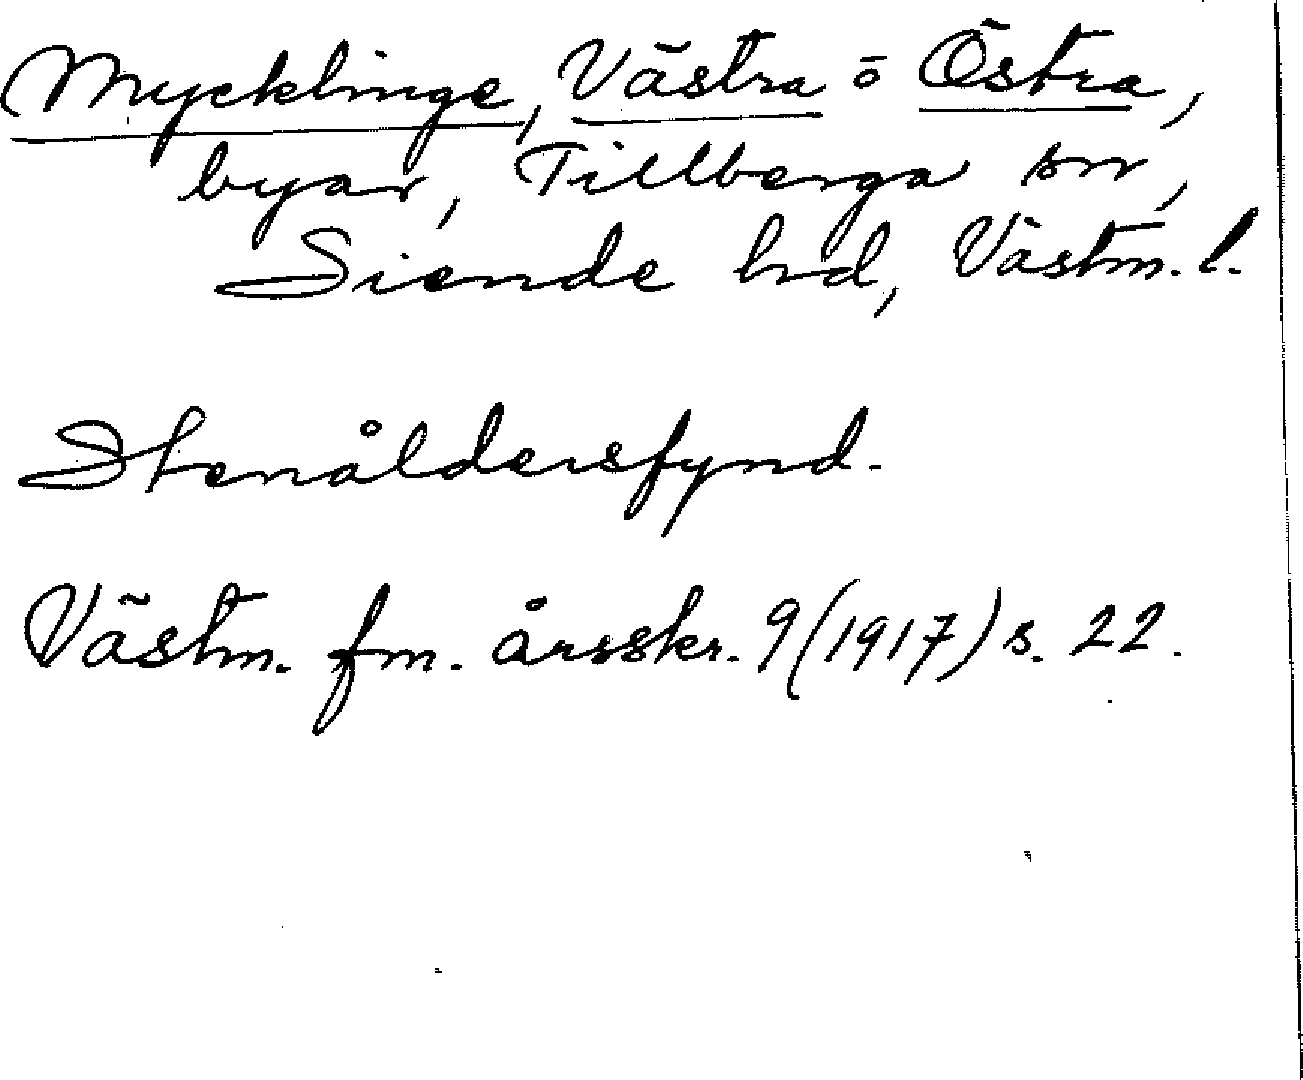 Mycklinge, Västra o Östra,
byar, Tillberga sn,
Siende hd, Västm. l.
Stenåldersfynd.
Västm. fm. årsskr. 9 (1917) s. 22.